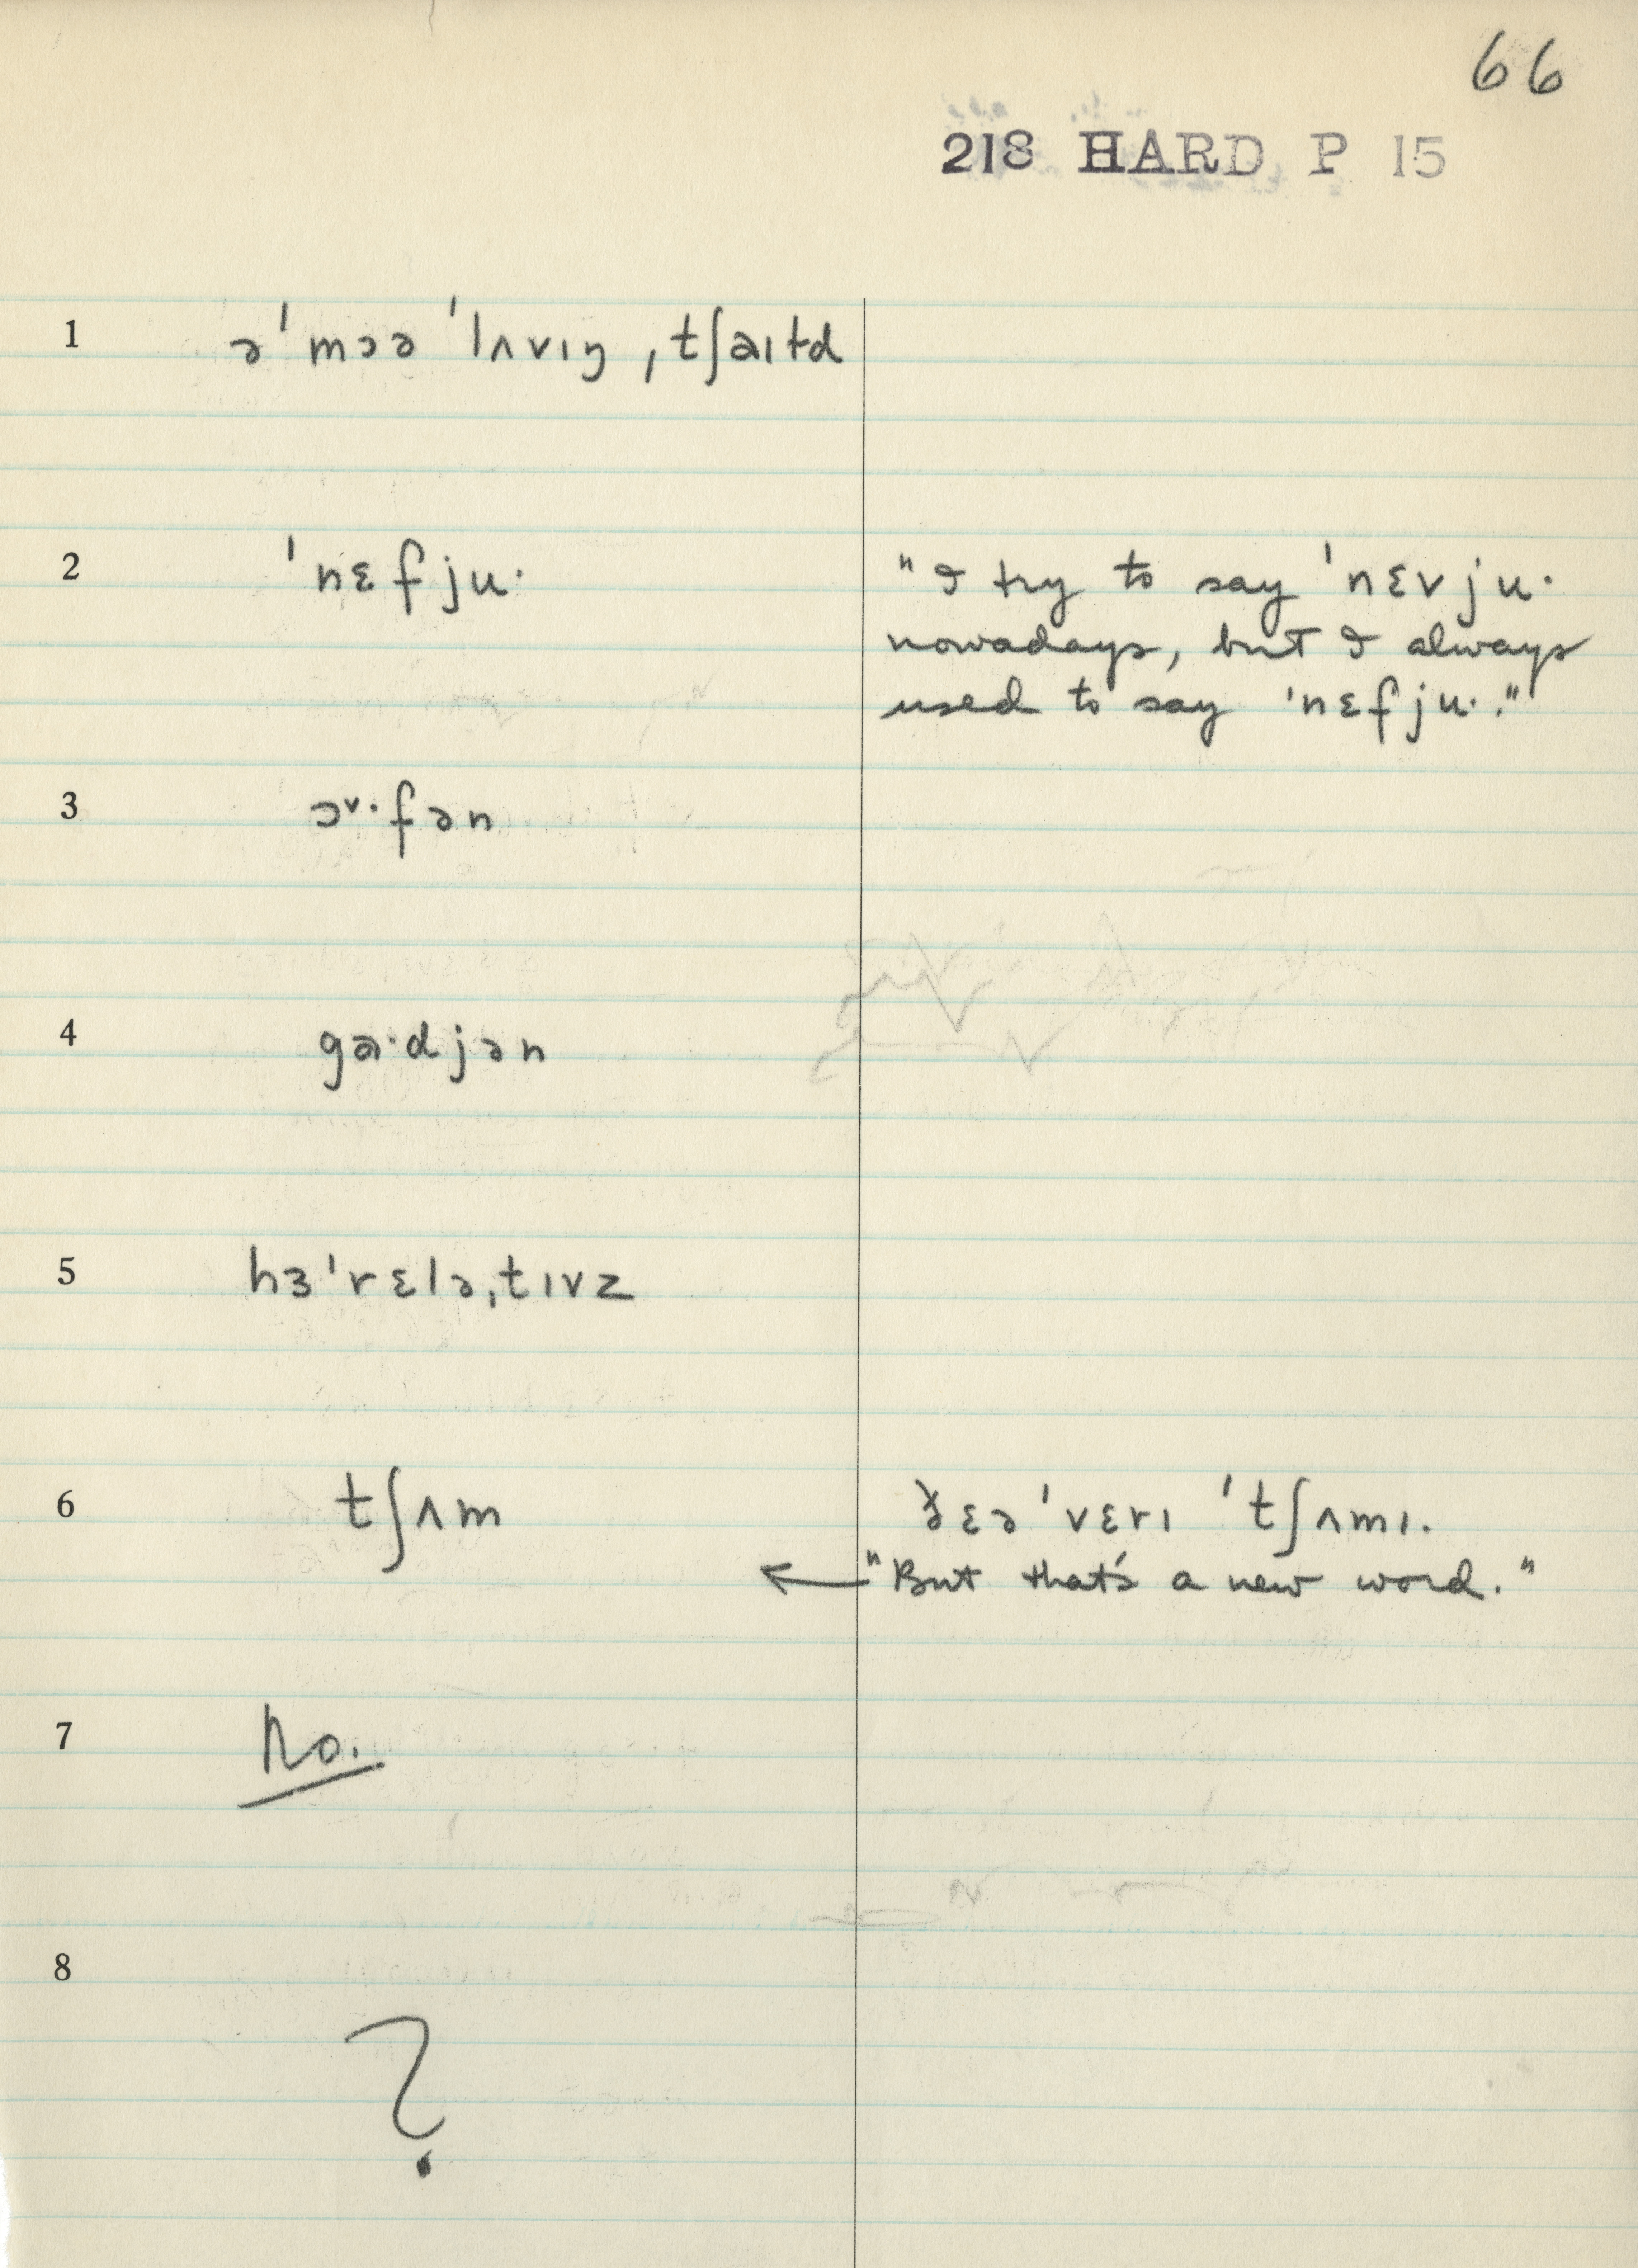 66
218 HARD P 15
1 ə'mɔə 'lʌvɪŋ ˌtʃaɪld
2 'nɛfju· "I try to say 'nɛvju·
nowadays, but I always
used to say 'nɛfju·."
3 ɔ˅·fən
4 ga·djən
5 hɜ'rɛləˌtɪvz
6 tʃʌm ðɛə 'vɛrɪ 'tʃʌmɪ.
← "But that's a new word."
7 No.
8 ?